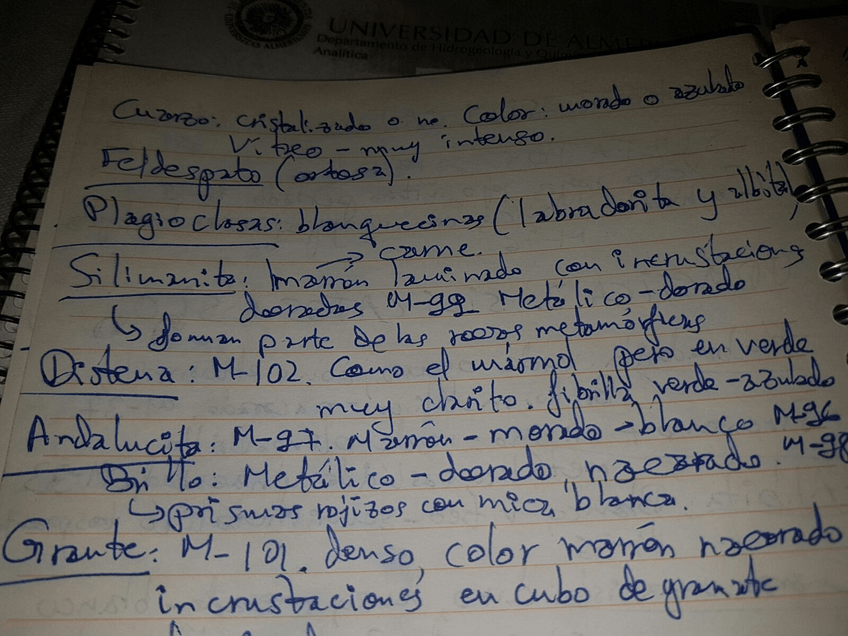 UNIVERSIDAD DE ALME
Departamento de Hidrogeología y Quím
Analítica
Cuarzo: cristalizado o no. Color: morado o azulado
Vítreo - muy intenso.
Feldespato (ortosa).
Plagioclasas: blanquecinas (labradorita y albita)
→ carne.
Silimanita: marrón laminado con incrustaciones
doradas M-99 Metálico-dorado
↳ forman parte de las rocas metamórficas
Distena: M-102. Como el mármol pero en verde
muy clarito. fibrilla verde-azulado
Andalucita: M-97. Marrón-morado-blanco M-96
Brillo: Metálico-dorado, nacarado. M-98
↳ prismas rojizos con mica blanca.
Granate: M-101. denso, color marrón nacarado
incrustaciones en cubo de granate